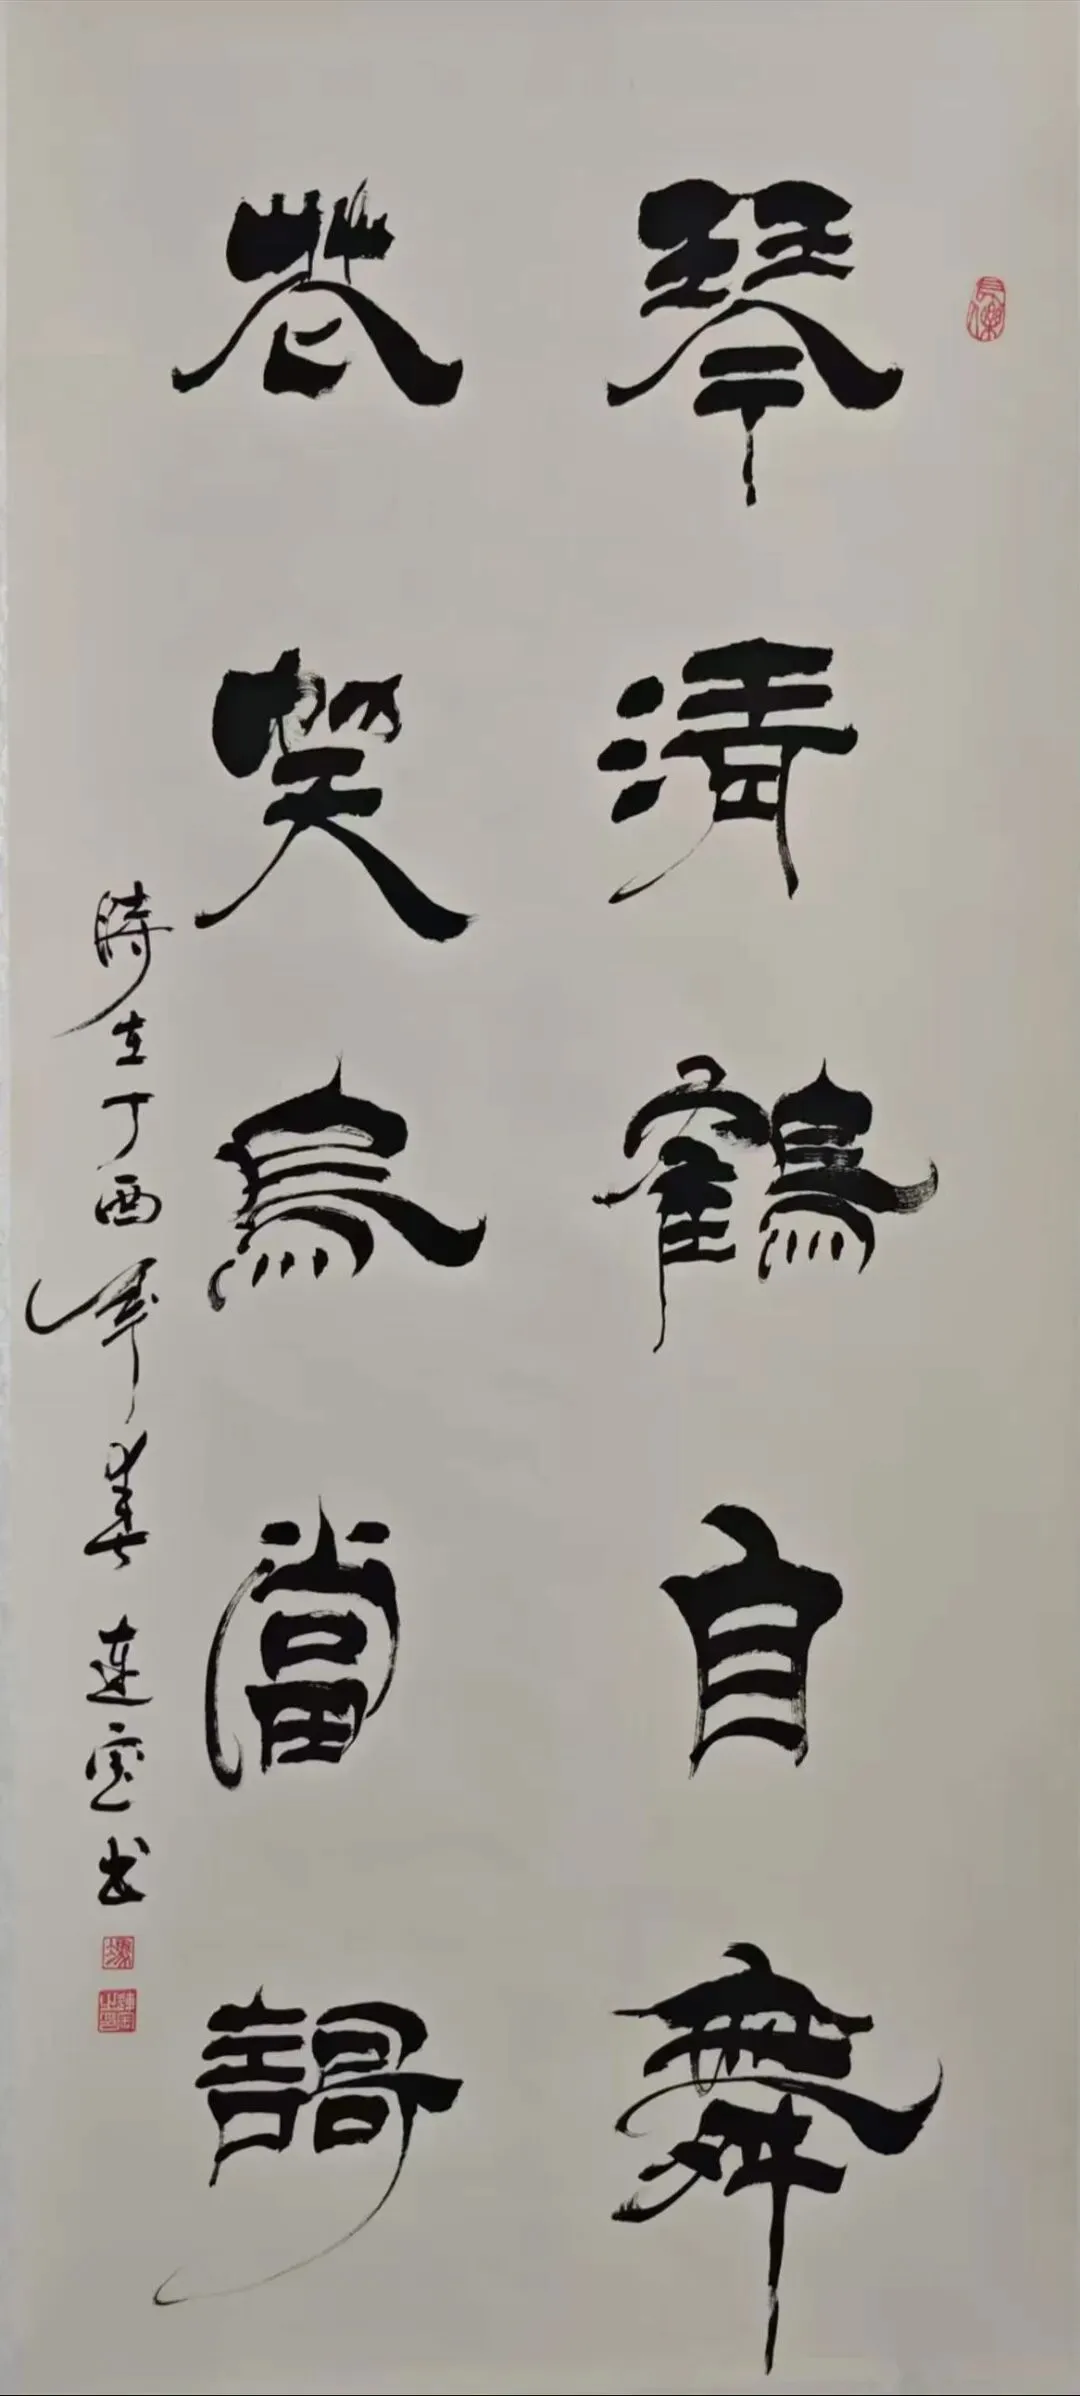 琴清鹤自舞
花笑鳥當謌
時在丁酉年春連宝书